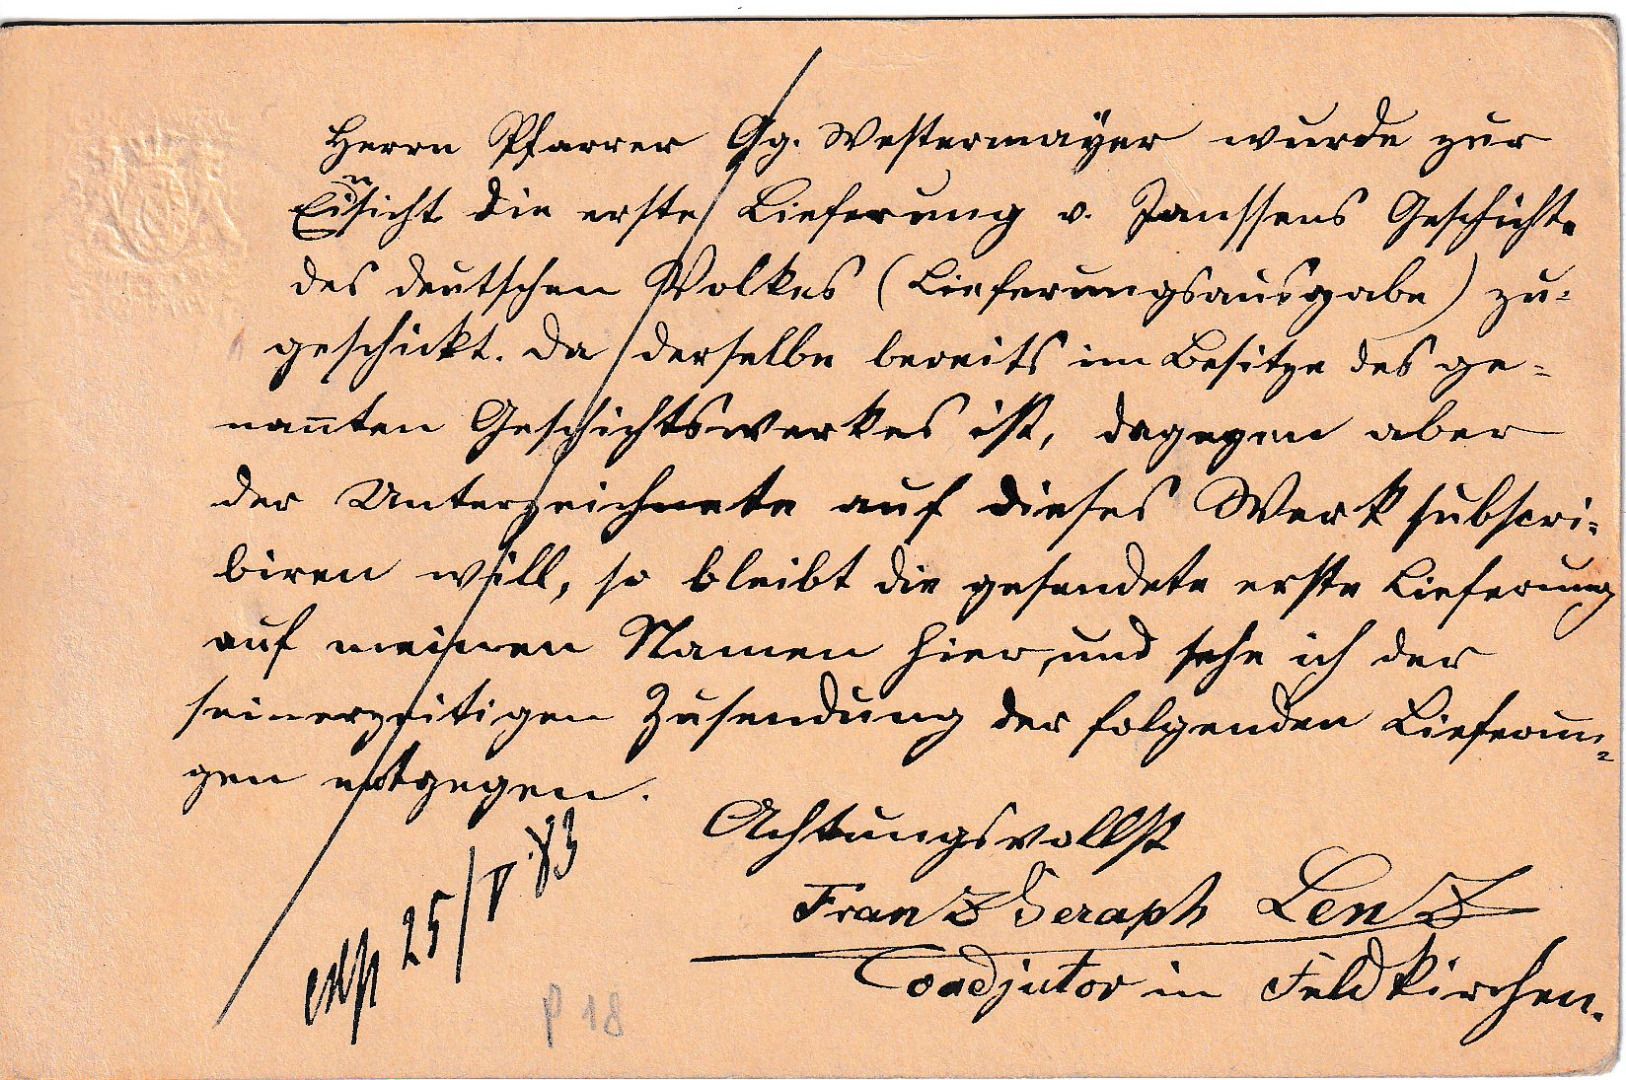 Herrn Pfarrer Gg. Westermayer wurde zur
Einsicht die erste Lieferung v. Janssens Geschichte
des deutschen Volkes (Lieferungsausgabe) zu-
geschickt. Da derselbe bereits im Besitze des ge-
nannten Geschichtswerkes ist, dagegen aber
der Unterzeichnete auf dieses Werk subscri-
biren will, so bleibt die gesendete erste Lieferung
auf meinen Namen hier, und sehe ich der
seinerzeitigen Zusendung der folgenden Lieferun-
gen entgegen.
Achtungsvollst
Franz Seraph Lenz
Coadjutor in Feldkirchen.
exp 25/V 83
P 18